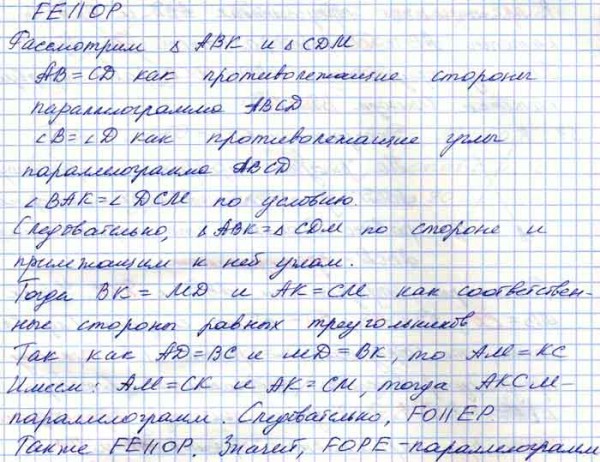 FE||OP
Рассмотрим △ ABK и △ CDM
AB=CD как противолежащие стороны
параллелограмма ABCD
∠B=∠D как противолежащие углы
параллелограмма ABCD
∠BAK=∠DCM по условию.
Следовательно, △ABK=△CDM по стороне и
прилежащим к ней углам.
Тогда BK=MD и AK=CM как соответствен-
ные стороны равных треугольников
Так как AD=BC и MD=BK, то AM=KC
Имеем: AM=CK и AK=CM, тогда AKCM-
параллелограмм. Следовательно, FO||EP
Также FE||OP. Значит, FOPE-параллелограмм